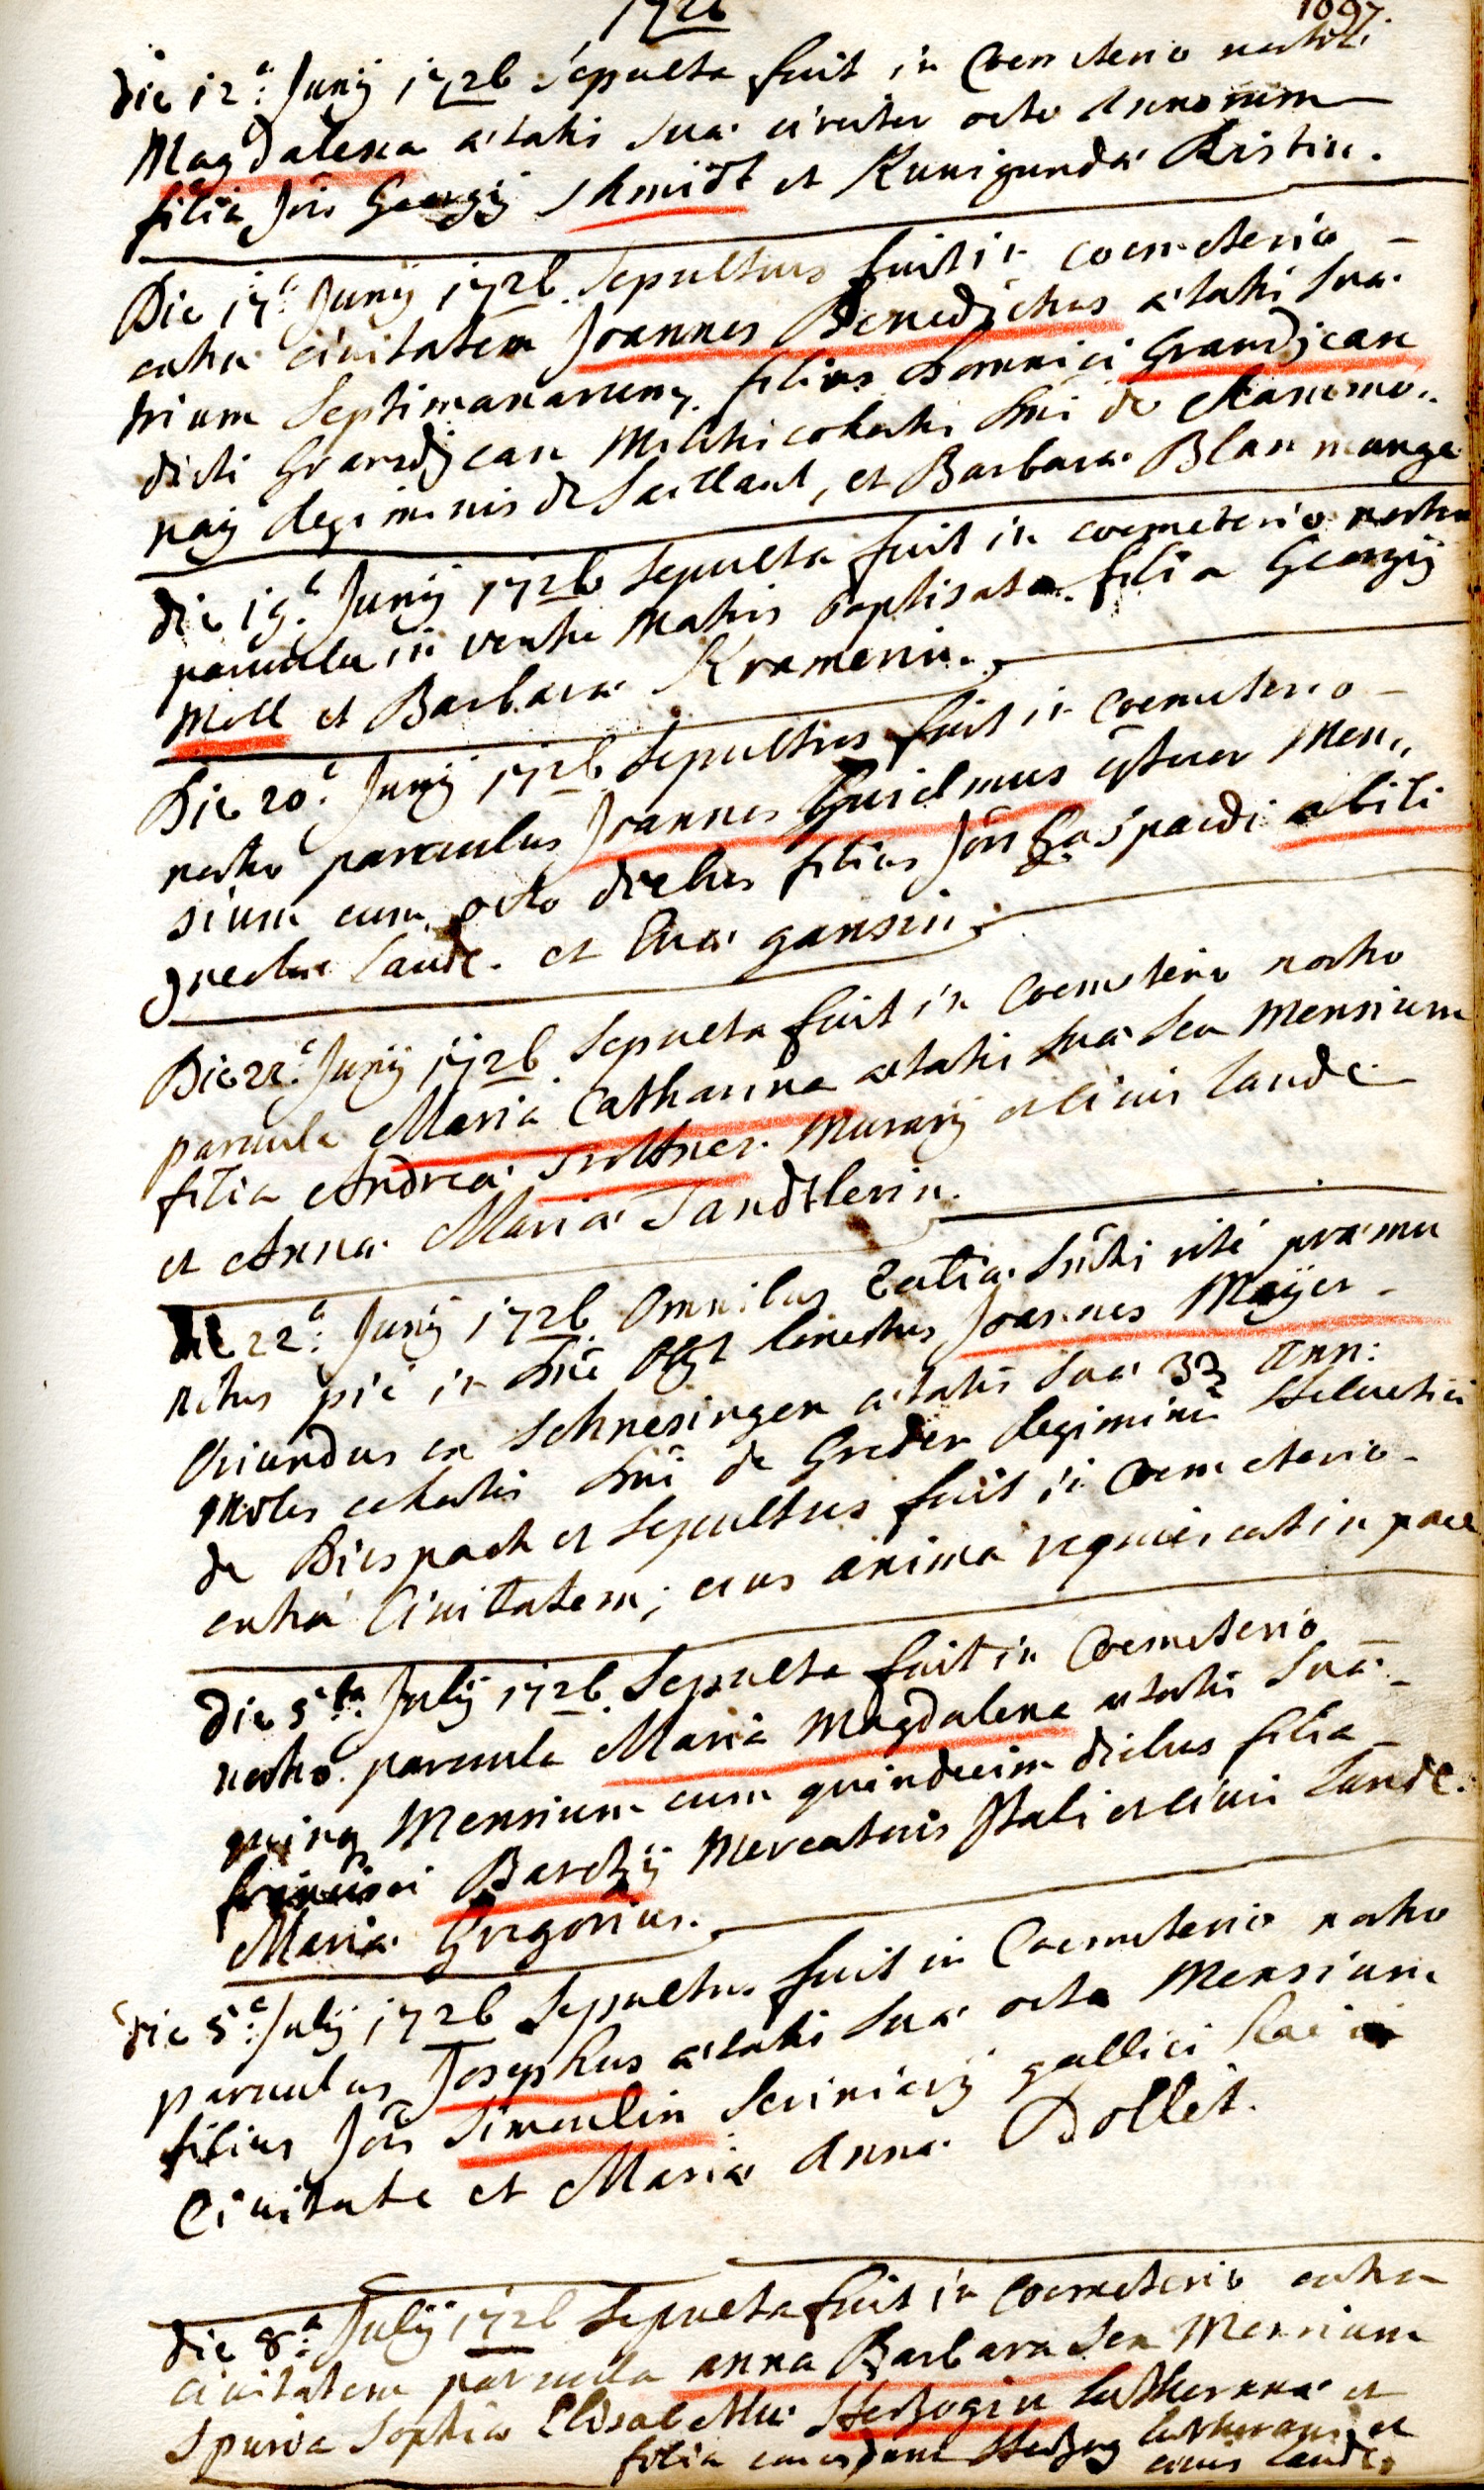 1726
1097.
die 12.a Junij 1726 Sepulta fuit in Coemeterio nostro
Magdalena aetatis suae circiter octo Annorum
filia Jois Georgij Schmidt et Kunigunda Kristin.
Die 17.a Junij 1726 Sepultus fuit in coemeterio
extra civitatem Joannes Benedictus aetatis suae
trium Septimanarum, filius Dominici Grandjean
dicti Grandjean Militis cohortis Dni de
nay Regiminis de Saillant, et Barbara Blanmange
die 19.a Junij 1726 Sepulta fuit in coemeterio nostro
parvula in ventre Matris baptisata. filia Georgij
Moll et Barbara Kramerin.
Die 20.a Junij 1726 Sepultus fuit in Coemeterio
nostro parvulus Joannes Guielmus Men„
sium cum octo diebus filius Jois Gaspardi
Landae. et Eva gansin.
Die 22.a Junij 1726 Sepulta fuit in Coemeterio nostro
parvula Maria Catharina aetatis suae sex Mensium
filia Andrea Murarij et civis Landae
et Anna Maria Sandtlerin.
Die 22.a Junij 1726 Omnibus Ecclia Sacrtis rite praemu
nitus pie in Dno Obyt honestus Joannes Mayer
Oriundus ex Schnesingen aetatis suae 33 ann:
Miles cohortis Dni de Greder Regiminis Helvetici
de Diespach et Sepultus fuit in Coemeterio
extra Civitatem; cius anima requiescat in pace
die 5.ta Julij 1726 Sepulta fuit in Coemeterio
nostro. parvula Maria Magdalena aetatis suae
quinq Mensium cum quindecim diebus filia
francisci Barchij Mercatoris Itali et civis Landae.
Maria Gregorius.
die 5.a Julij 1726 Sepultus fuit in Coemeterio nostro
parvulus Josephus aetatis suae octo Mensium
filius Jois Simculin Scriniarij gallici hac in
Civitate et Maria Anna Dollet.
die 8.a Julij 1726 Sepulta fuit in Coemeterio extra
civitatem parvula anna Barbara sex Mensium
Spuria Sophia Elisabetha Hertzogin Lutherana et
filia Hertzog Lutherani et
civis Landae